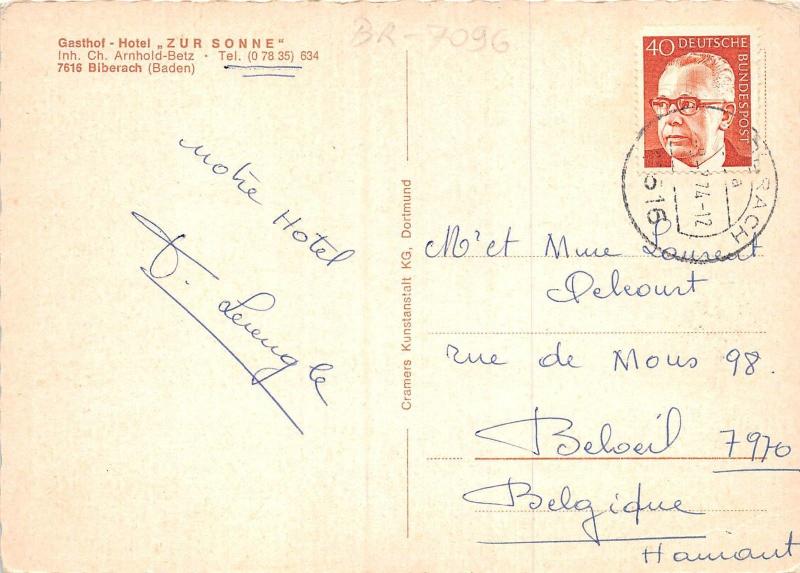 Gasthof - Hotel „ZUR SONNE"
Inh. Ch. Arnhold-Betz · Tel. (0 78 35) 634
7616 Biberach (Baden)
BR-7096
notre Hotel
Cramers Kunstanstalt KG, Dortmund
40 DEUTSCHE
BUNDESPOST
74-12
a
Mr et Mme Laurent
Delcourt
rue de Mons 98.
Beloeil 7970
Belgique
Hainaut